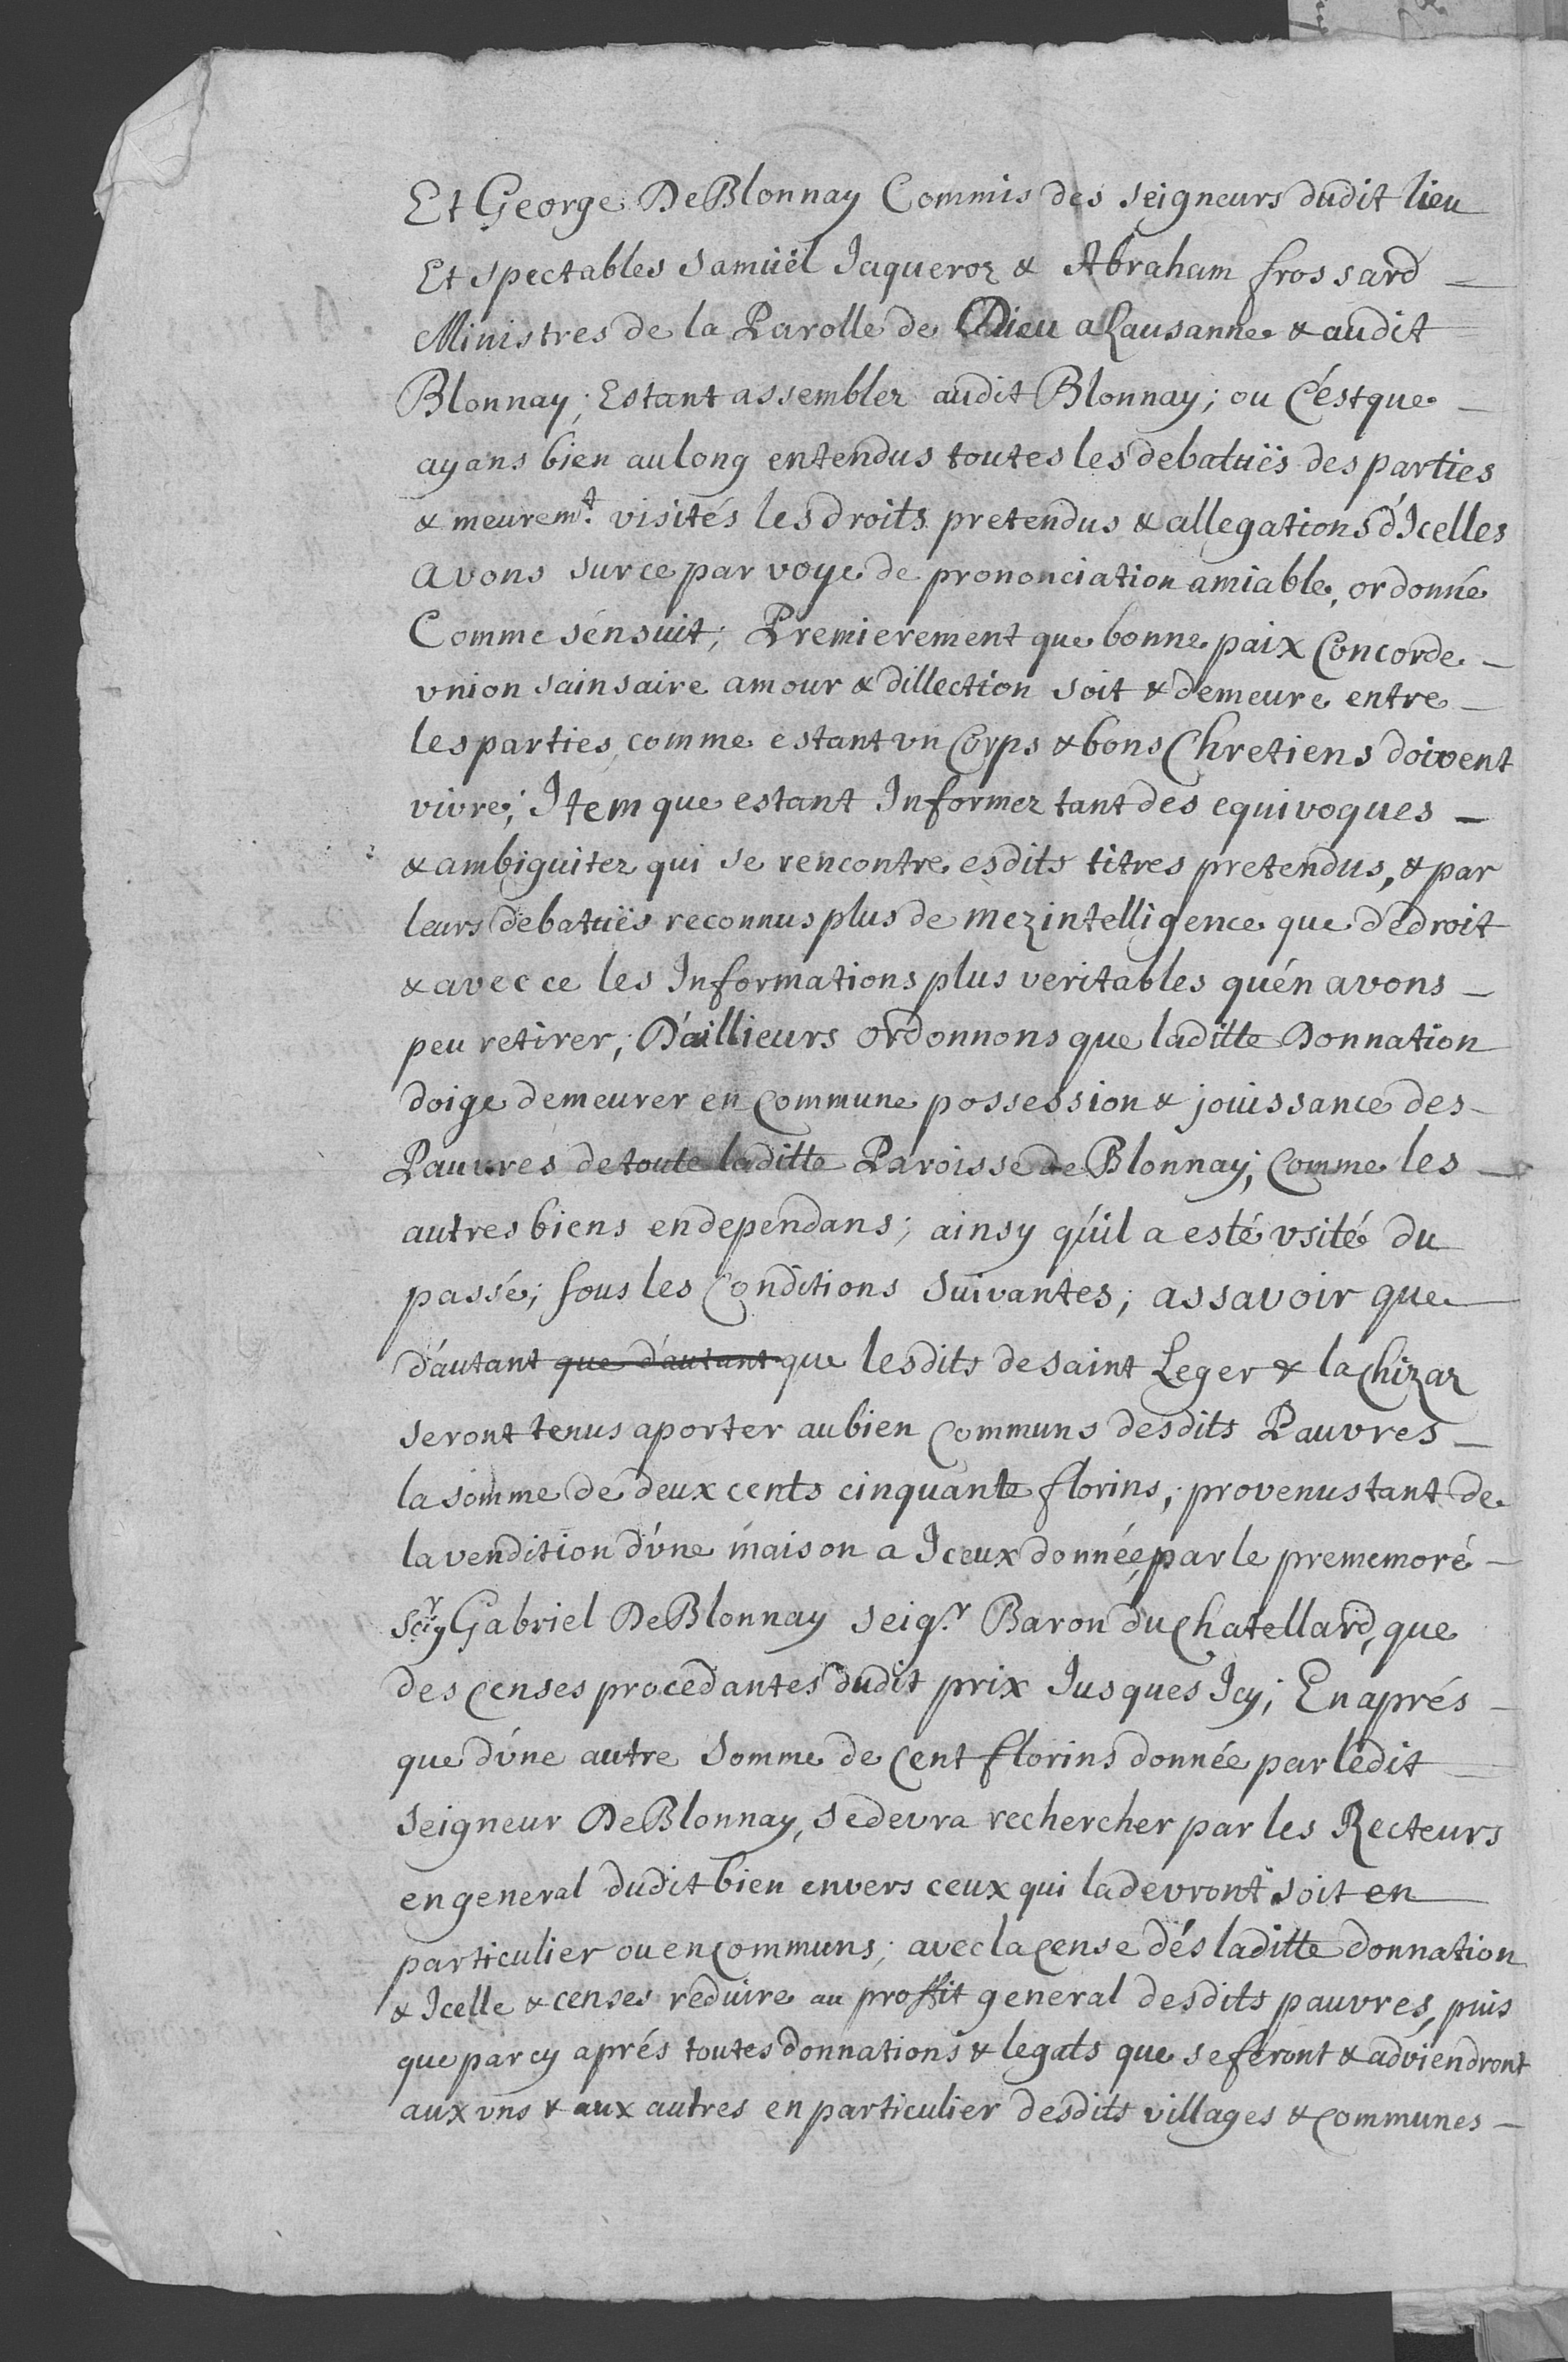 Et George DeBlonnay Commis des seigneurs dudit lieu
Et spectables Samüel Jaqueroz & Abraham frossard
Ministres de la Parolle de Dieu a Lausanne & audit
Blonnay; Estant assemblez audit Blonnay; ou C'est que
ayans bien au long entendus toutes les debatuës des parties
& meurem.t visités les droits pretendus & allegations d'Icelles
avons sur ce par voye de prononciation amiable, ordonné
Comme s'ensuit; Premierement que bonne paix Concorde
vnion sainsaire amour & dillection soit & demeure entre
les parties, comme estant vn Corps & bons Chretiens doivent
vivre; Item que estant Informez tant des equivoques
& ambiguitez qui se rencontre esdits titres pretendus, & par
leurs debatuës reconnus plus de mezintelligence que de droit
& avec ce les Informations plus veritables qu'en avons
peu retirer; D'aillieurs ordonnons que laditte Donnation
doige demeurer en commune possession & jouissance des
Pauvres de toute laditte Paroisse de Blonnay; Comme les
autres biens en dependans; ainsy qu'il a esté vsité du
passé; sous les Conditions suivantes; assavoir que
d'autant que d'autant que lesdits de saint Leger & la Chizaz
seront tenus aporter au bien communs desdits Pauvres
la somme de deux cents cinquante florins; provenus tant de
la vendition d'vne maison a Iceux donnée, par le prememoré
Sg.r Gabriel DeBlonnay seig.r Baron du Chatellard, que
des censes procedantes dudit prix Jusques Icy; En aprés
que d'vne autre somme de Cent florins donnée par ledit
seigneur DeBlonnay, se devra rechercher par les Recteurs
en general dudit bien envers ceux qui la devront soit en
particulier ou en communs; avec la cense dés laditte donnation
& Icelle & censes reduire au proffit general desdits pauvres, puis
que par cy aprés toutes donnations & legats que se feront & adviendront
aux vns & aux autres en particulier desdits villages & communes